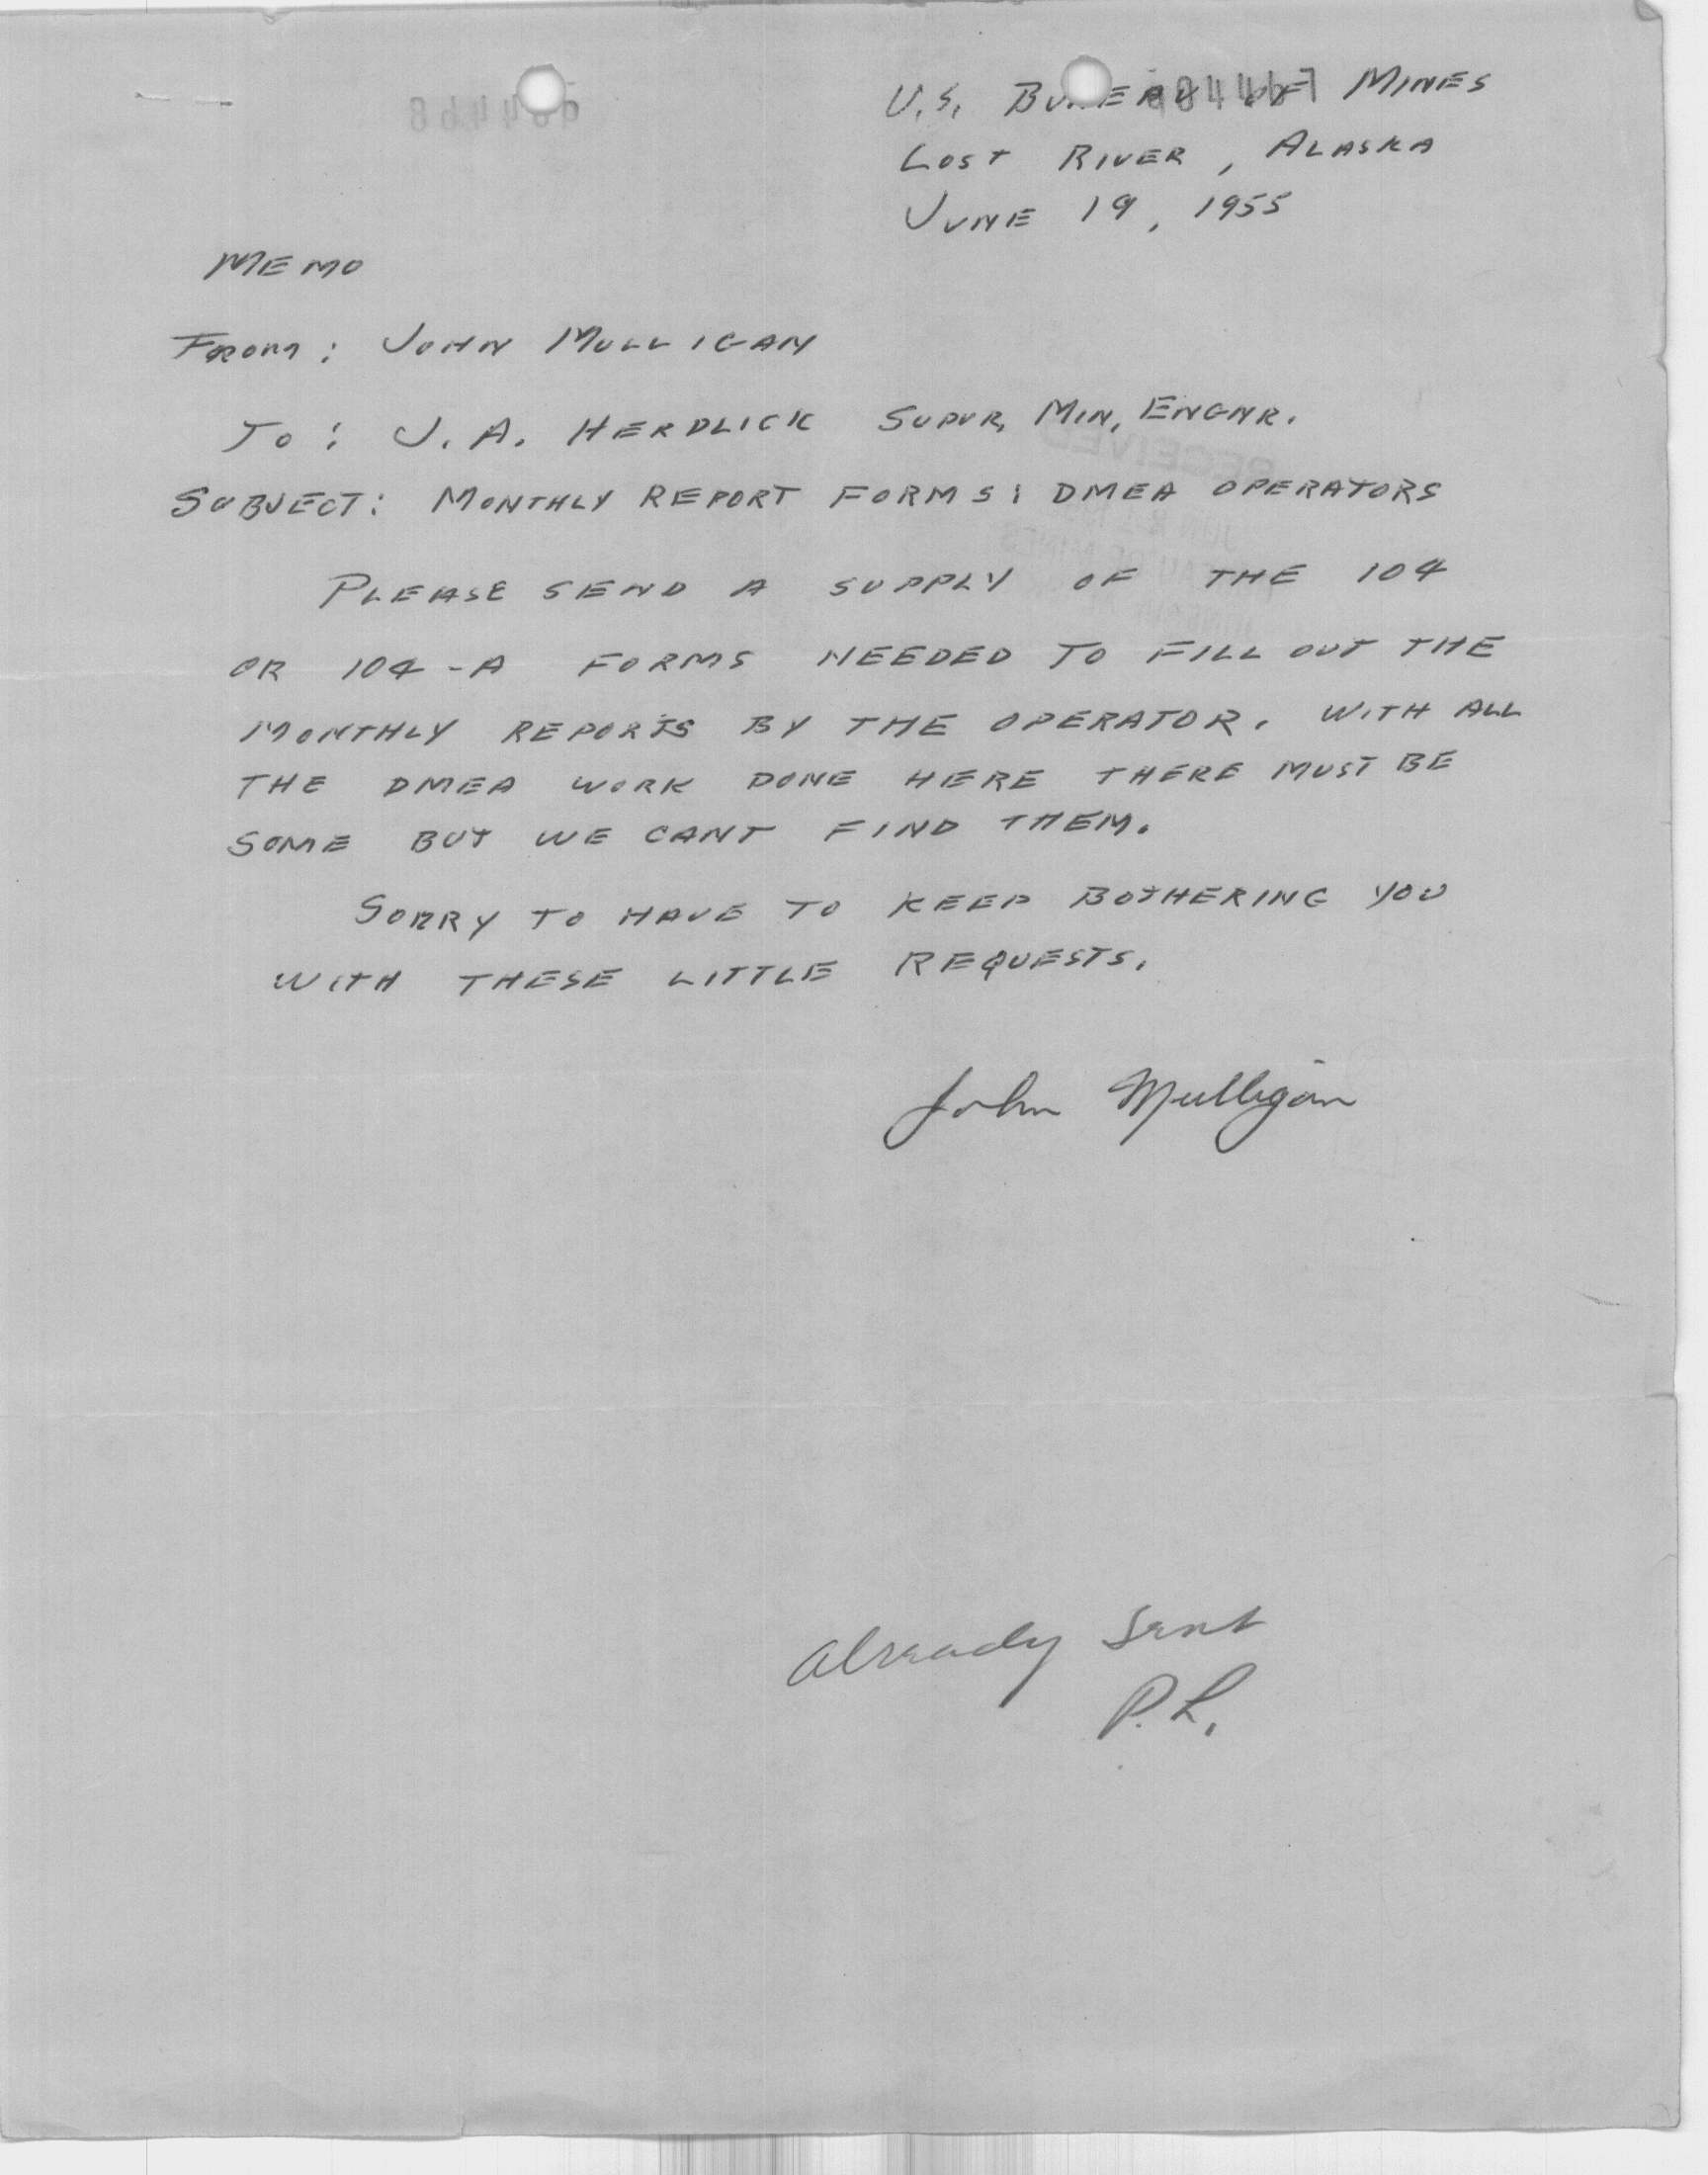 U.S. Bureau of Mines
984467
Lost River, Alaska
June 19, 1955
Memo
From: John Mulligan
To: J. A. Herdlick Supvr. Min. Engnr.
Subject: Monthly Report Forms: DMEA Operators
Please send a supply of the 104
or 104-A forms needed to fill out the
monthly reports by the operator. With all
the DMEA work done here there must be
some but we cant find them.
Sorry to have to keep bothering you
with these little requests.
John Mulligan
Already sent
P.L.